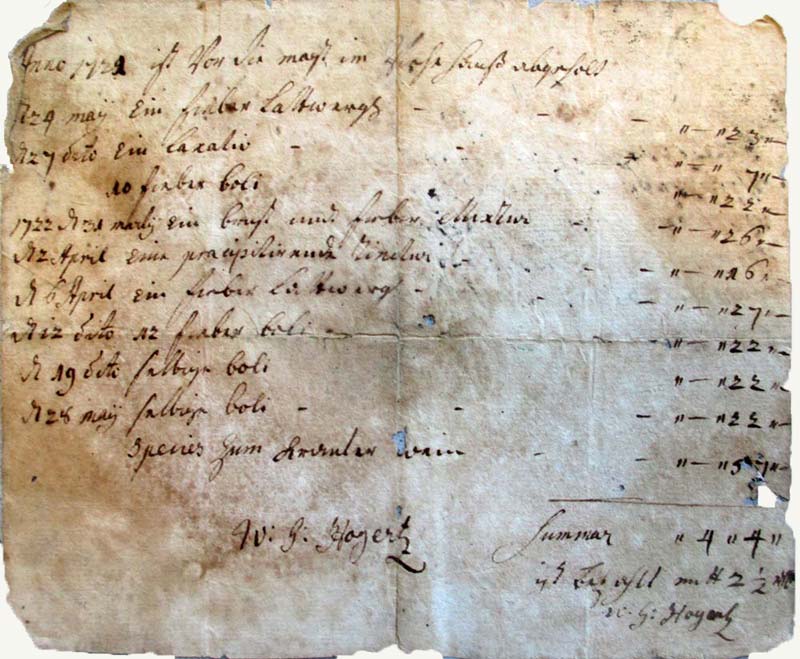 Anno 1721 ist Vor die mayst im hauß abgeholt
d 24 may Ein fieber Lattwergh - - - " — " 23 "—
d 27 dito Ein laxativ - - - " — " 7 "—
10 fieber boli " — " 22 "—
1722 d 31 martij Ein brust und fieber Mixtur - - " — " 26 "—
d 2 April Eine præcipitirende Tinctur - - - " — " 16 "
d 6 April Ein fieber Lattwergh - - - " — " 27 "—
d 12 dito 12 fieber boli - - - " — " 22 "—
d 19 dito selbige boli " — " 22 "—
d 28 maij selbige boli - - - " — " 22 "—
Species zum Kräuter wein - - " — " "—
W: G: Hogertz
Summar " 4 " 4 "
ist bezahlt mit 2 1/2
W: G: Hogertz